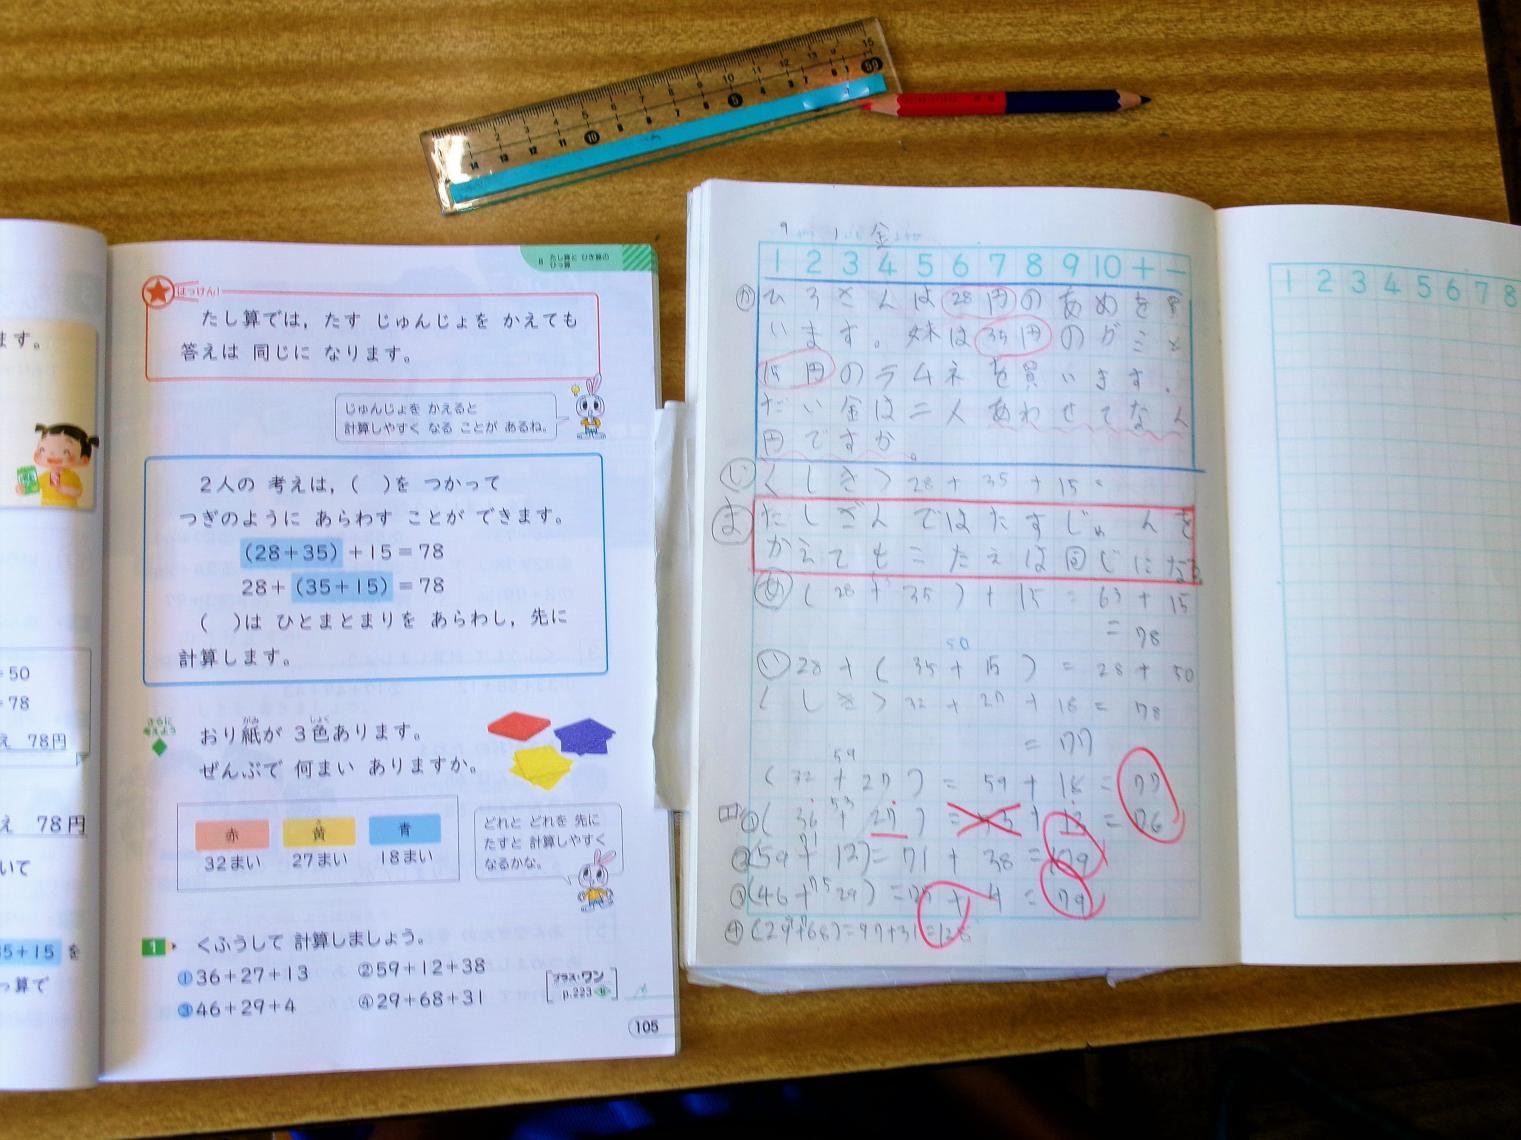 ます。
=50
=78
え 78円
え 78円
いて
35+15 を
っ算で
8 たし算と ひき算の
ひっ算
はっけん!
たし算では,たす じゅんじょを かえても
答えは 同じに なります。
じゅんじょを かえると
計算しやすく なる ことが あるね。
2人の 考えは,( )を つかって
つぎのように あらわす ことが できます。
(28+35)+15=78
28+(35+15)=78
( )は ひとまとまりを あらわし,先に
計算します。
さらに
考えよう
おり紙が 3色あります。
ぜんぶで 何まい ありますか。
赤 黄 青
32まい 27まい 18まい
どれと どれを 先に
たすと 計算しやすく
なるかな。
1 くふうして 計算しましょう。
①36+27+13 ②59+12+38
③46+29+4 ④29+68+31
プラス・ワン
p.223
105
1 2 3 4 5 6 7 8 9 10 11 12 13 14 15
9 1 金
1 2 3 4 5 6 7 8 9 10 + −
か ひろさんは28円のあめを買
います。妹は35円のガムと
15円のラムネを買います。
だい金は二人あわせてなん
円ですか。
(しき)28+35+15=
ま たしざんではたすじゅんを
かえてもこたえは同じになる
(28+35)+15=63+15
=78
50
28+(35+15)=28+50
(しき)32+27+18=78
=77
59
(32+27)=59+18=77
①(36+27)= +13=76
②(59+12)=71+38=109
③(46+29)=75+4=79
④(29+68)=97+31=128
1 2 3 4 5 6 7 8